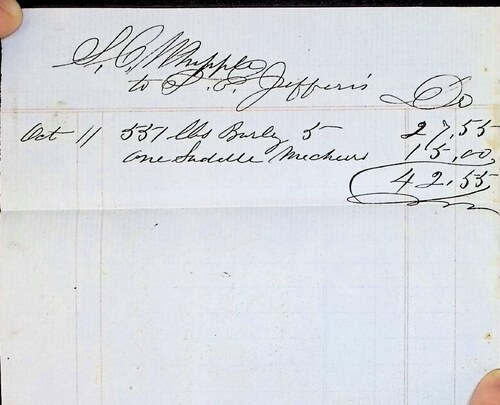 S. C. Whipple
to S. E. Jefferis Dr
Oct 11 551 lbs Barley 5 27,55
one Saddle 15,00
42,55